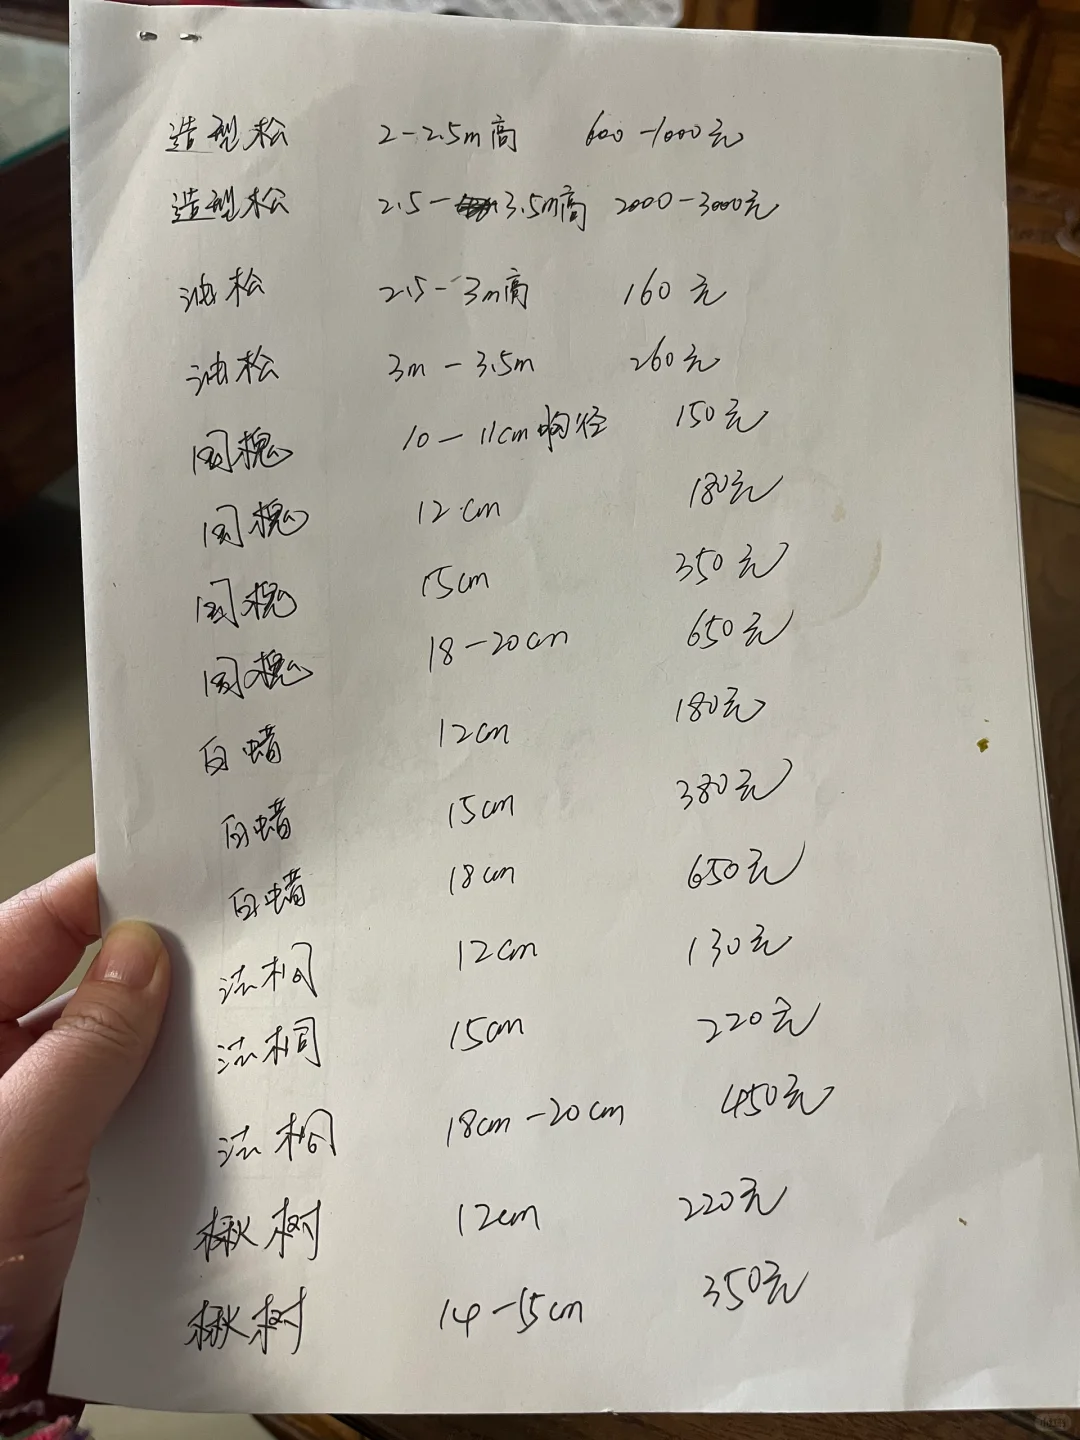 造型松 2-2.5m高 600-1000元
造型松 2.5-3.5m高 2000-3000元
油松 2.5-3m高 160元
油松 3m-3.5m 260元
国槐 10-11cm胸径 150元
国槐 12cm 180元
国槐 15cm 350元
国槐 18-20cm 650元
白蜡 12cm 180元
白蜡 15cm 380元
白蜡 18cm 650元
法桐 12cm 130元
法桐 15cm 220元
法桐 18cm-20cm 450元
楸树 12cm 220元
楸树 14-15cm 350元